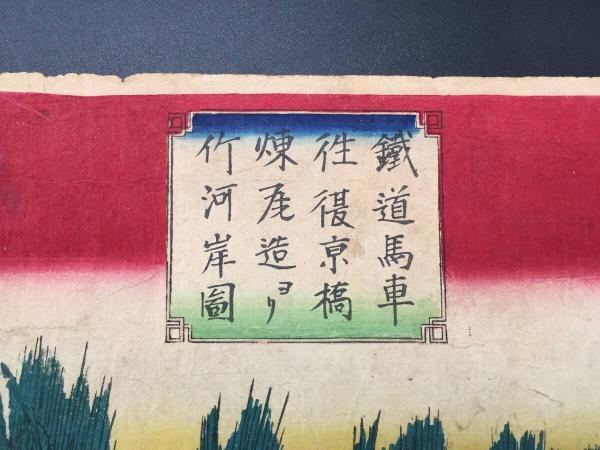 鐵道馬車
往復京橋
煉瓦造ヨリ
竹河岸圖